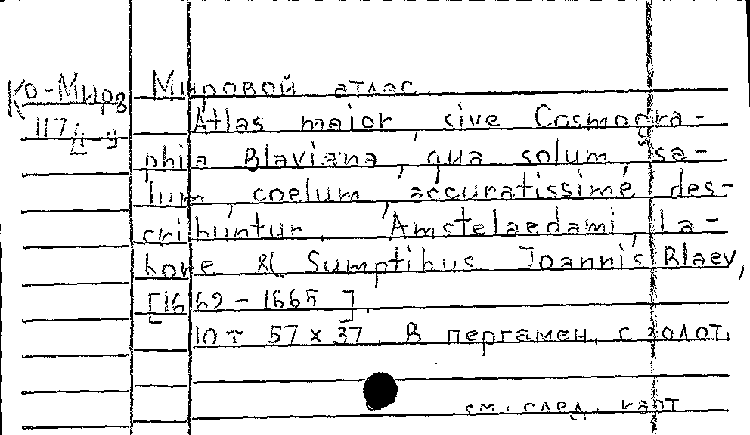 Ко-Мир
117
Мировой атлас
Atlas maior, sive Cosmogra-
phia Blaviana, qua solum, sa-
lum, coelum, accuratissime des-
cribuntur. Amstelaedami, La-
bore & Sumptibus Joannis Blaev,
[1662-1665].
10 т 57 x 37 В пергамен. с золот.
см. след. карт